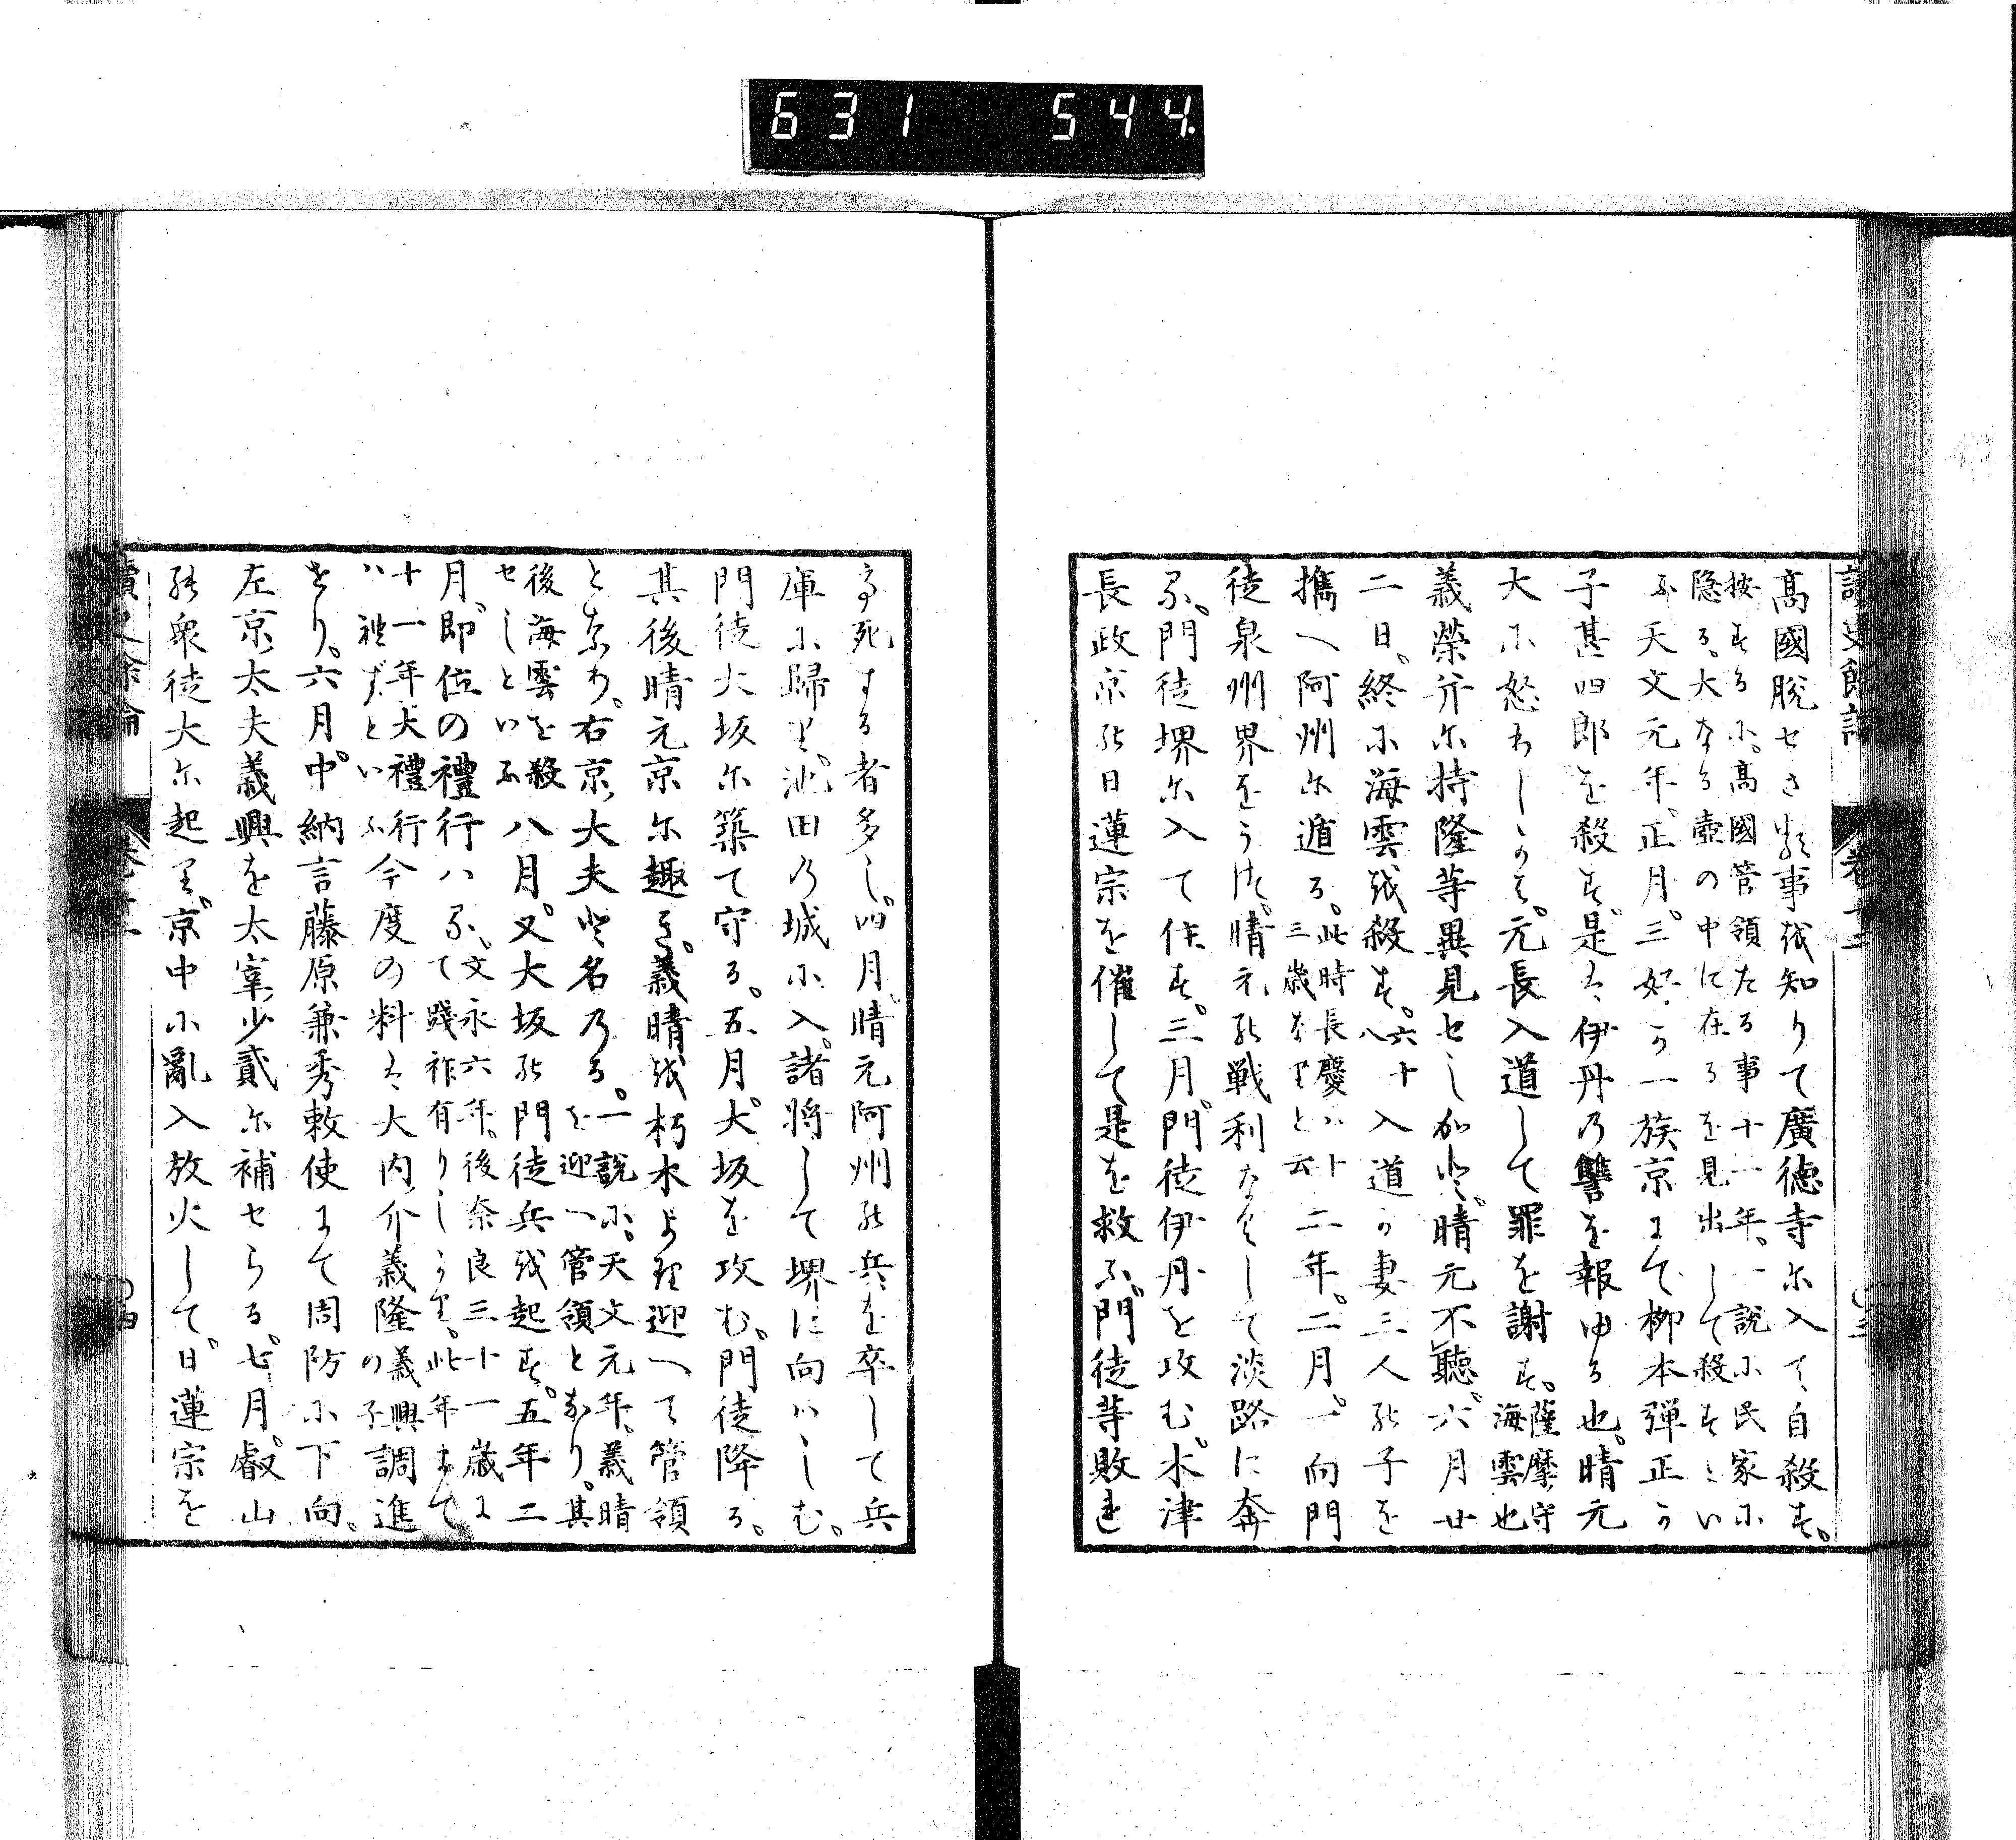 631 544
讀史餘論 卷十二
高國脱せさる事を知りて廣德寺に入て自殺す。
按するに。高國管領たる事十一年。一説に民家に
隠る。大なる壺の中に在るを見出して殺すとい
ふ天文元年。正月。三好か一族京にて柳本彈正か
子甚四郎を殺す。是は伊丹の讐を報ゆる也。晴元
大に怒わしかは。元長入道して罪を謝す。
薩摩守
海雲也
義榮并に持隆等異見せしかと。晴元不聽。六月廿
二日。終に海雲を殺す。
六十
八
入道か妻三人の子を
携へ阿州に遁る。
此時長慶ハ十
三歳なりと云
二年。二月。一向門
徒泉州界をうつ。晴元の戰利なくして淡路に奔
る。門徒堺に入て住す。三月。門徒伊丹を攻む。木津
長政京の日蓮宗を催して是を救ふ。門徒等敗れ
て死する者多し。四月。晴元阿州の兵を卒して兵
庫に歸り。池田の城に入。諸將して堺に向ハしむ。
門徒大坂に築て守る。五月。大坂を攻む。門徒降る。
其後晴元京に趣き。義晴を朽木より迎へて管領
となわ。右京大夫と名のる。
一説に。天文元年。義晴
を迎へ管領となり。其
後海雲を殺
せしといふ
八月。又大坂の門徒兵を起す。五年二
月。即位の禮行ハる。
文永六年。後奈良三十一歳に
て踐祚有りしかと。此年まて
十一年大禮行
ハれずといふ
今度の料は大内介義隆
義興
の子
調進
せり。六月。中納言藤原兼秀敕使にて周防に下向。
左京太夫義興を太宰少貳に補せらる。七月。叡山
の衆徒大に起り。京中に亂入放火して。日蓮宗を
讀史餘論 卷十二